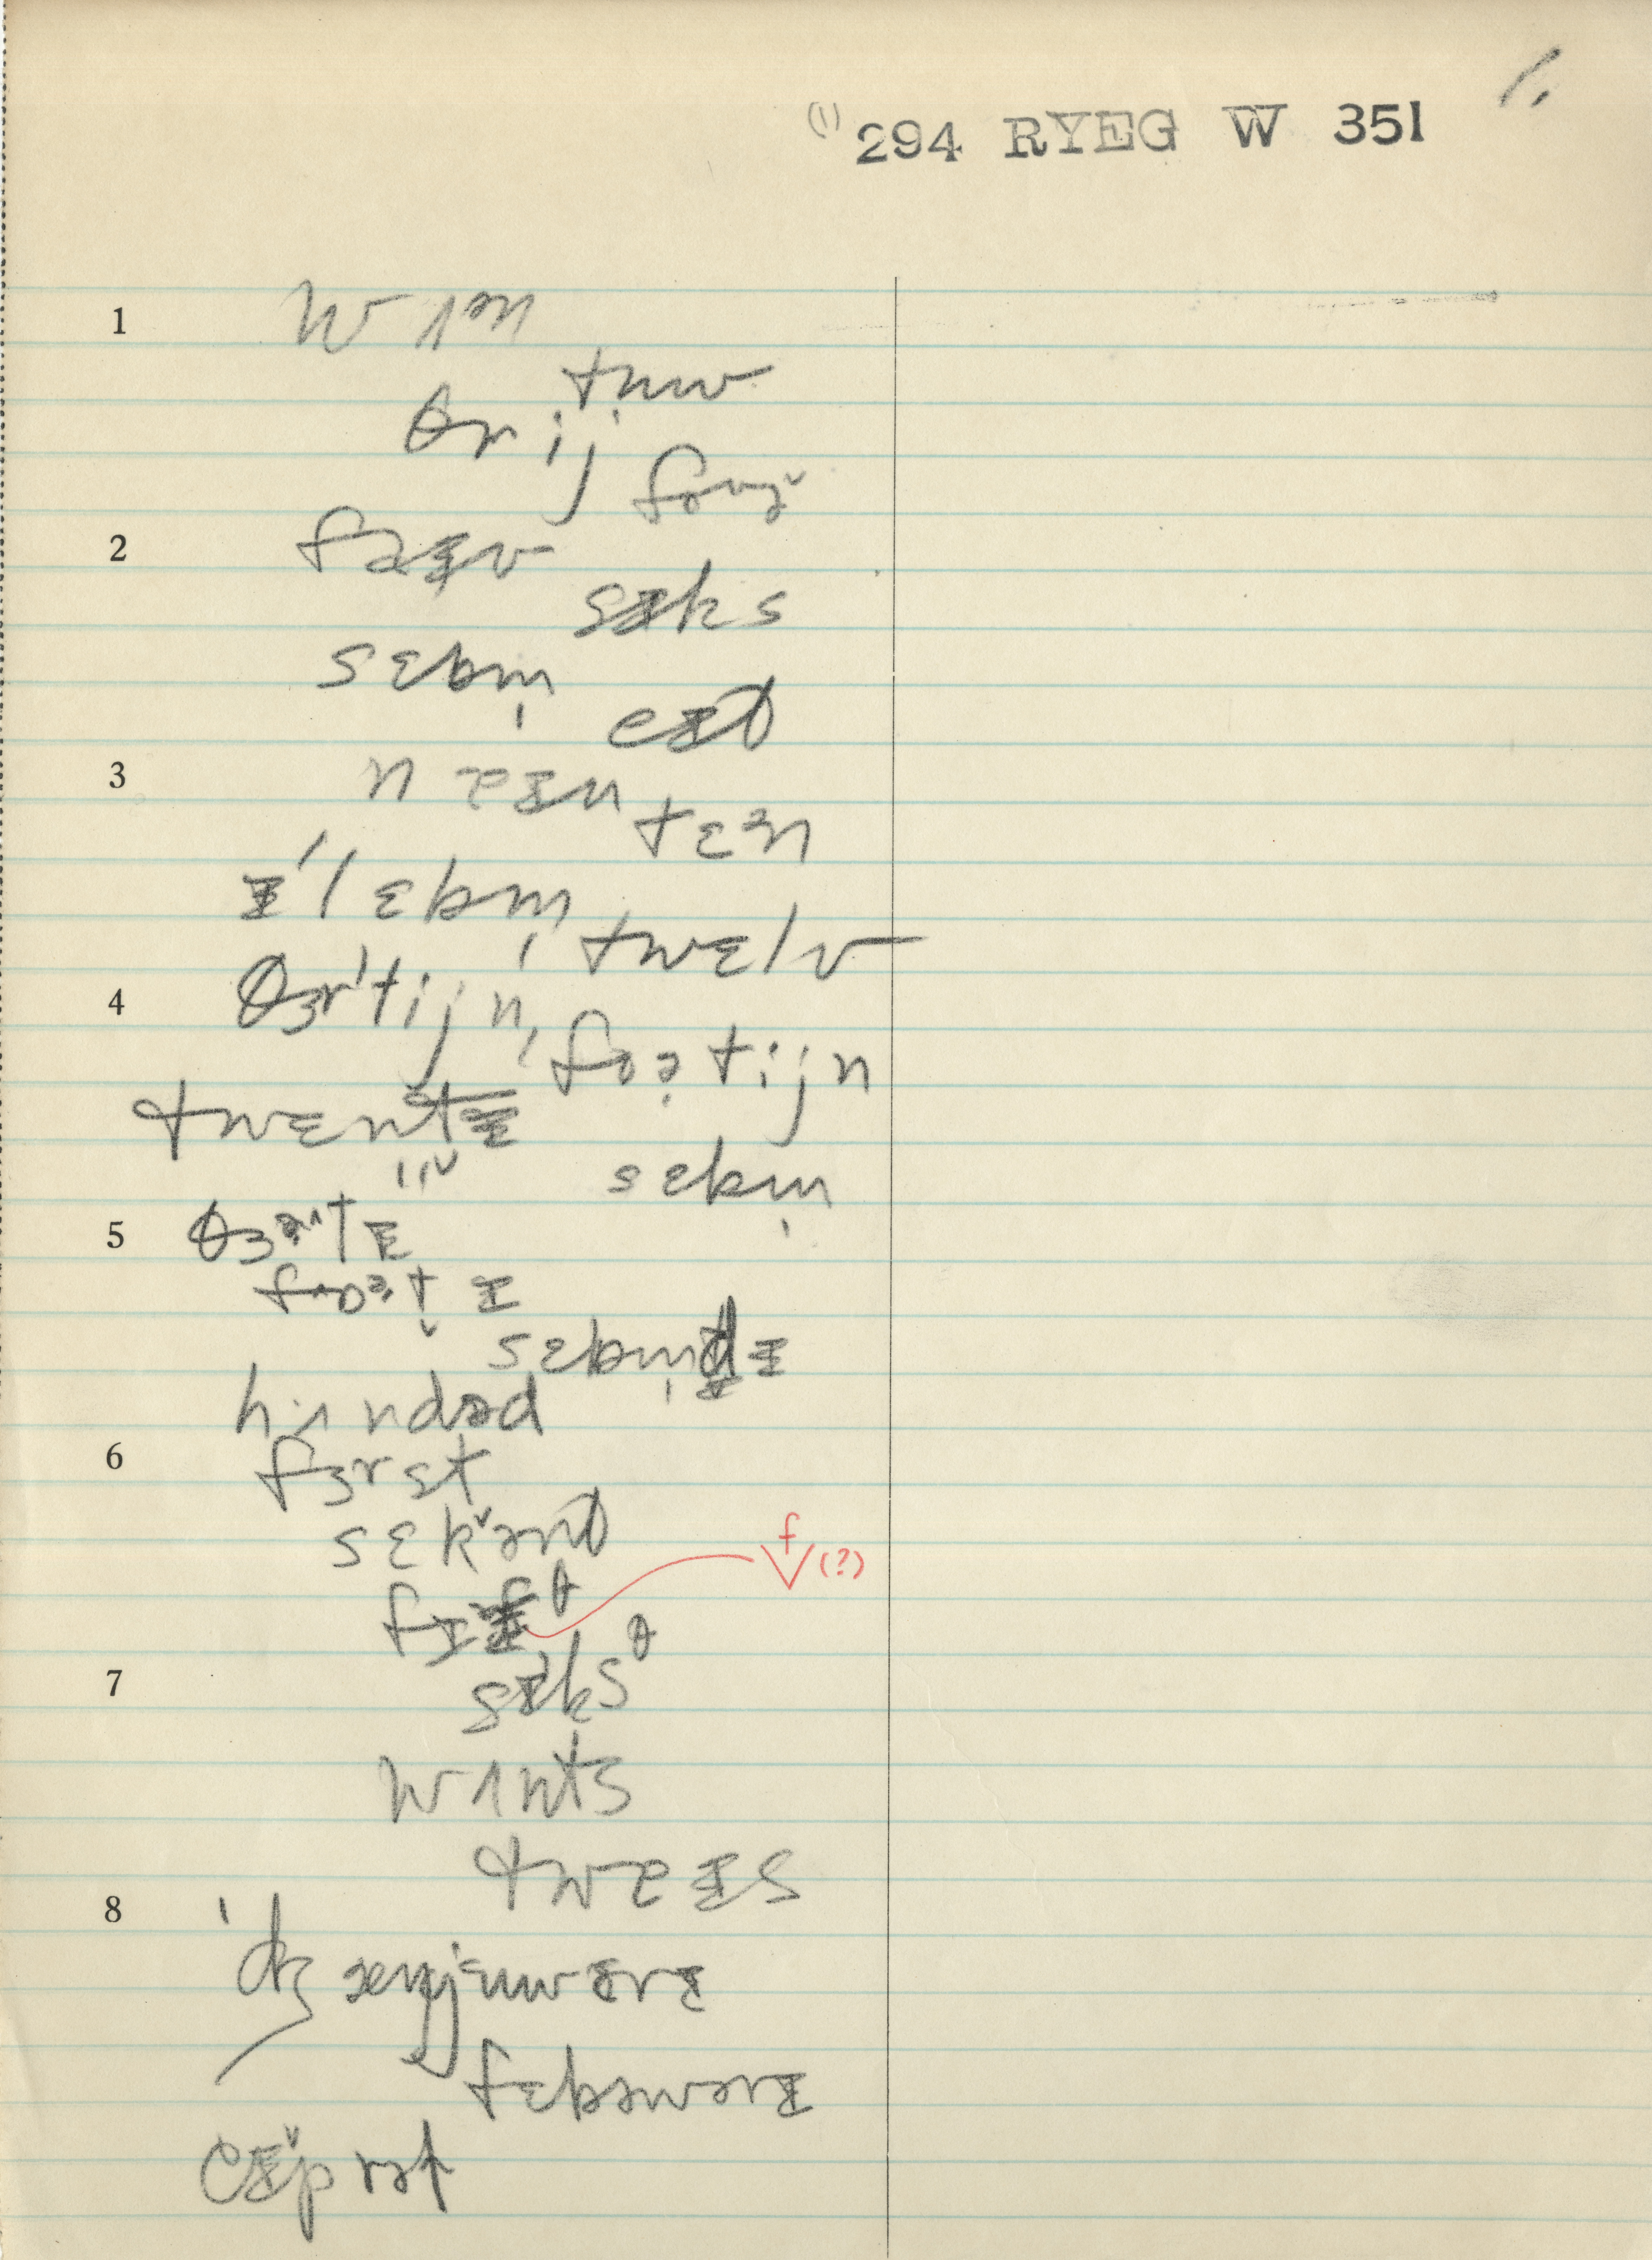 1.
(1) 294 RYEG W 351
1 wʌən
tʉw
θrij
foʊə̬
2 faɪv
sɪks
sɛbm̩
eɪt
3 naɪn
tɛən
ɪ'lɛbm̩
twɛlv
4 θɜr'tijn
foətijn
twɛntɪ
sɛbm̩
5 θɜrtɪ
foətɪ
sɛbm̩dɪ
hʌndəd
6 fɜrst
sɛk̬ənt
f
(?)
7 sɪksθ
wʌnts
twaɪs
8 'dʒænjʉwɛrɪ
fɛbəwərɪ
eɪp̬rəl